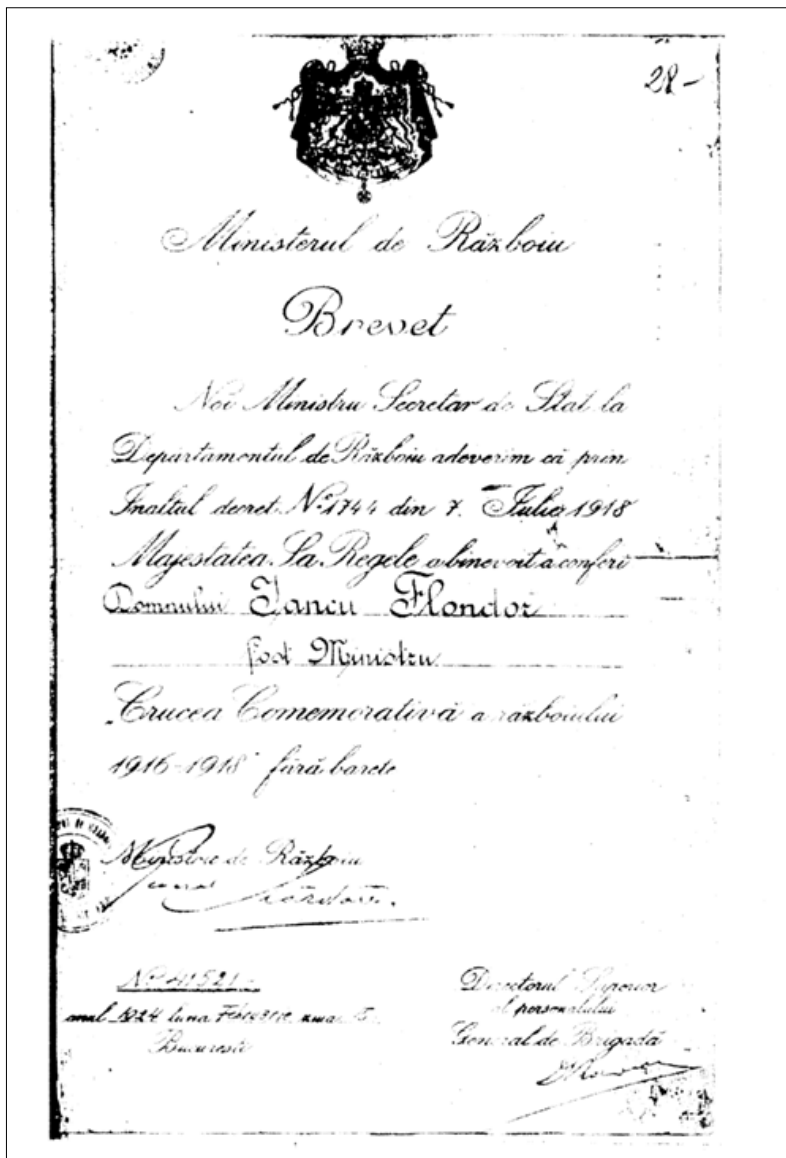 28-
Ministerul de Războiu
Brevet
Noi Ministru Secretar de Stat la
Departamentul de Războiu adeverim că prin
Inaltul decret Nº 1744 din 7. Iulie 1918
Majestatea Sa Regele a binevoit a conferi
Domnului Iancu Flondor
fost Ministru
„Crucea Comemorativă a războiului
1916-1918" fără barete
Ministru de Războiu
Nº 41521-
anul 1924 luna ziua
Bucuresti
Directorul Superior
al personalului
General de Brigadă